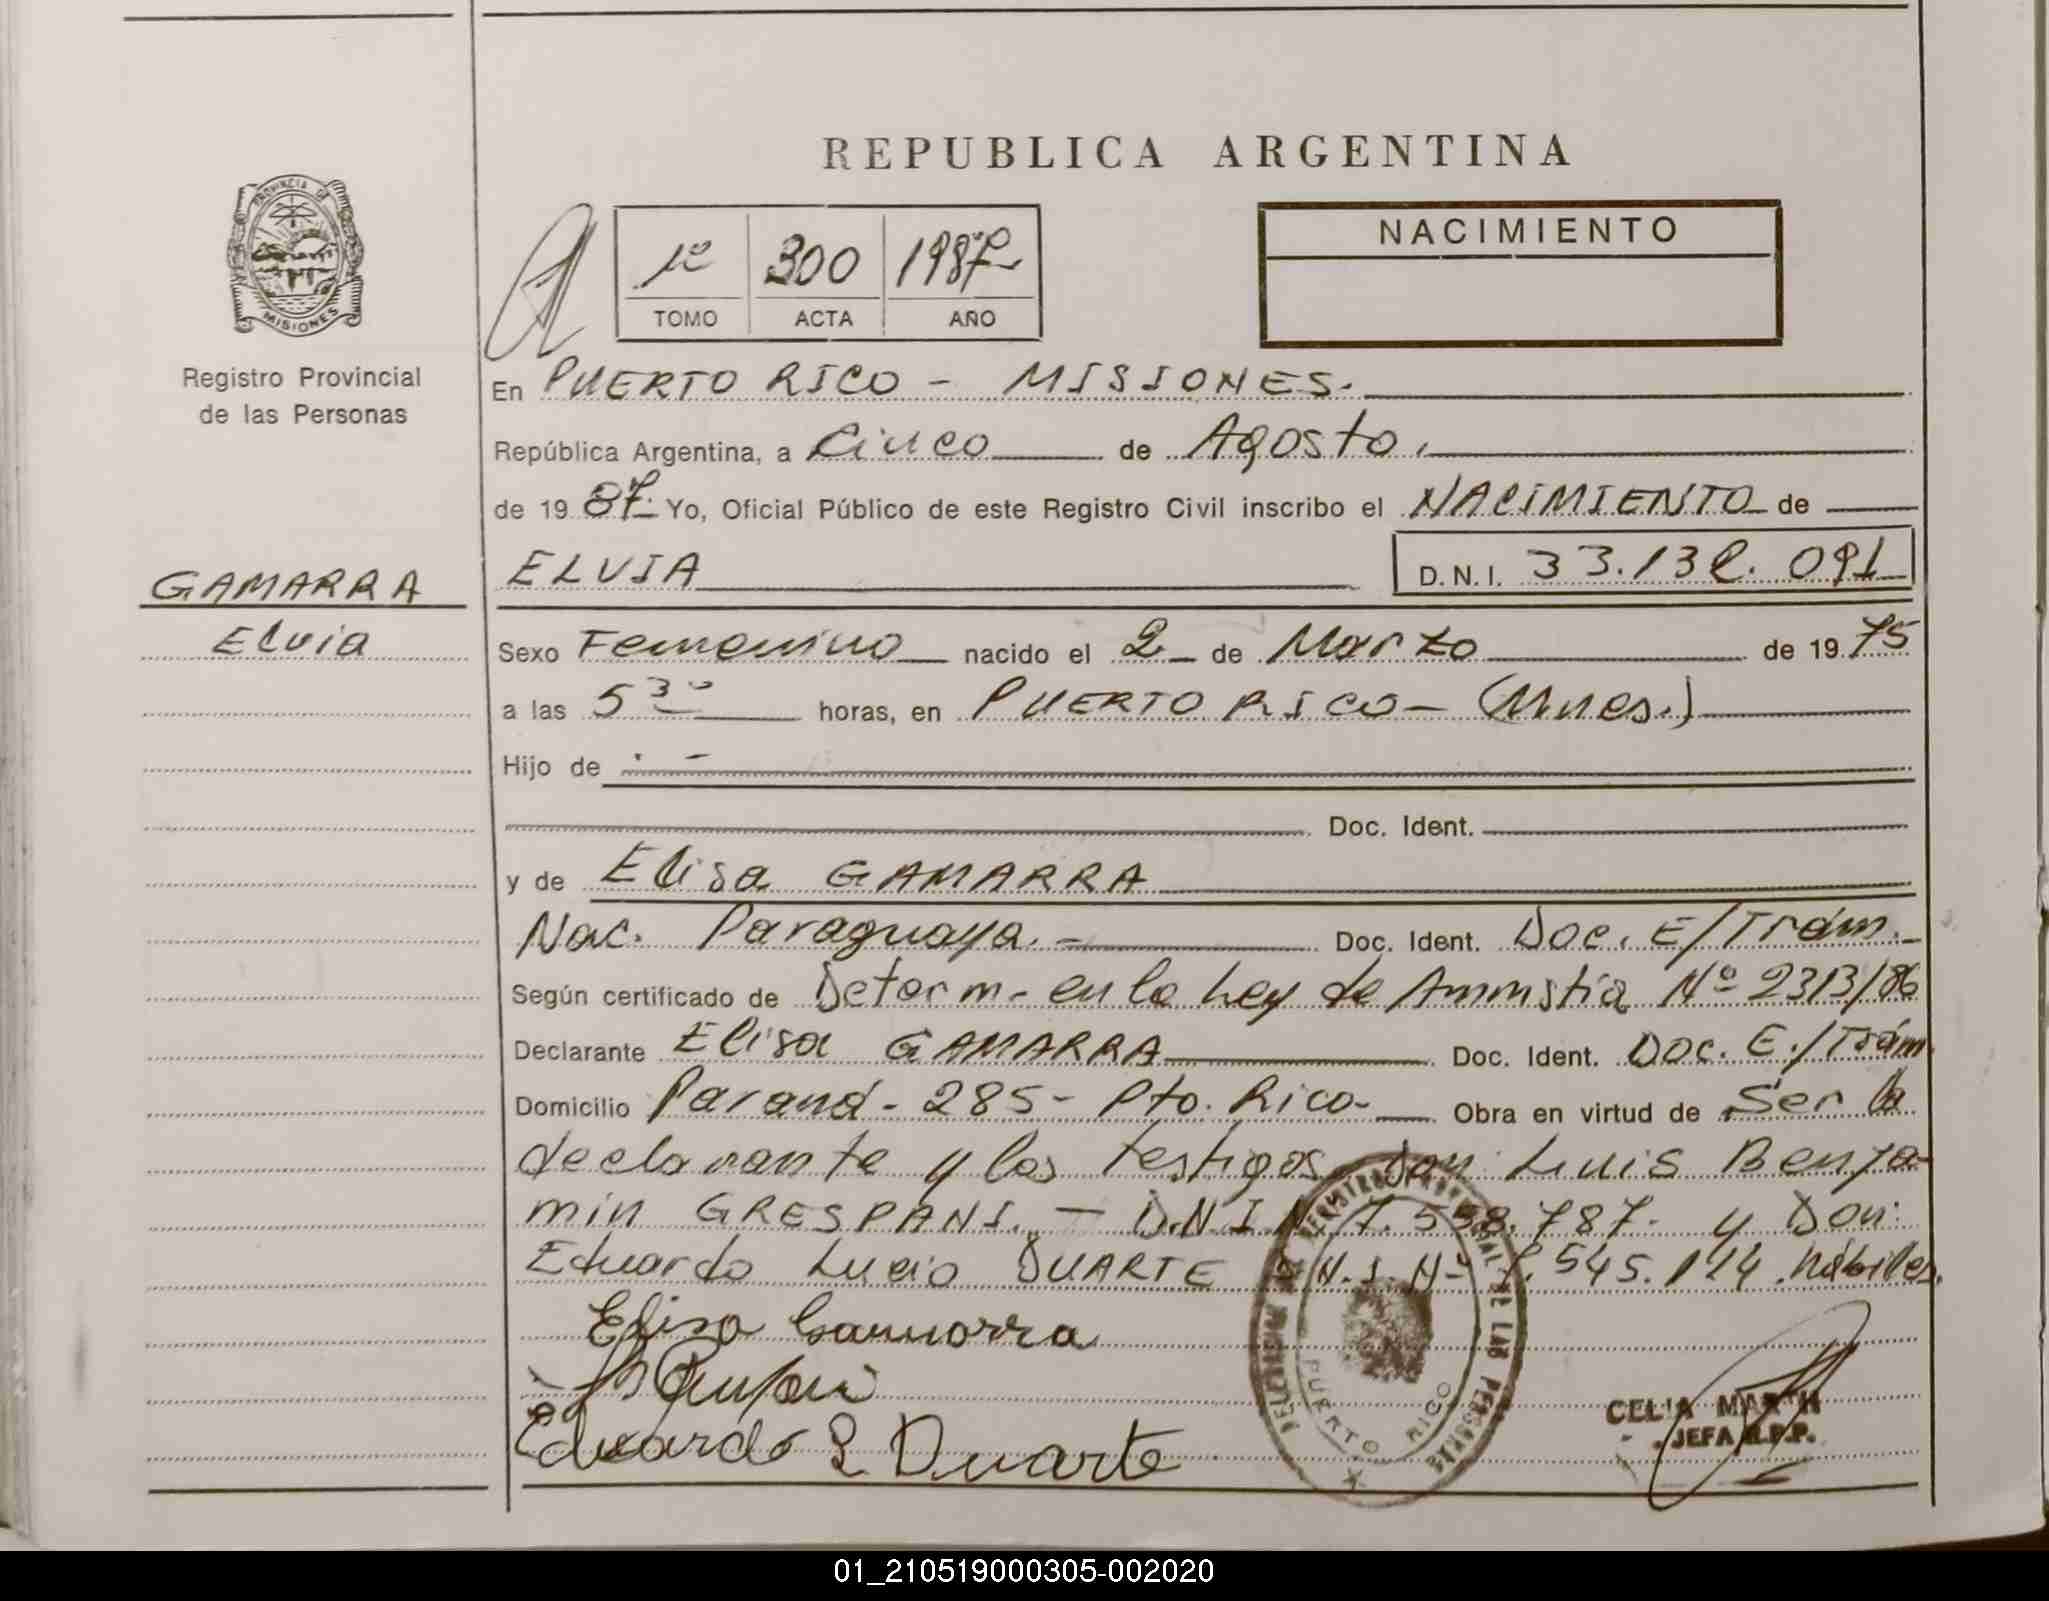 REPUBLICA ARGENTINA
PROVINCIA DE
MISIONES
Registro Provincial
de las Personas
1º 300 1987
TOMO ACTA AÑO
NACIMIENTO
En PUERTO RICO - MISIONES.
República Argentina, a Cinco de Agosto.
de 1987 Yo, Oficial Público de este Registro Civil inscribo el NACIMIENTO de
GAMARRA
Elvia
ELVIA D.N.I. 091
Sexo Femenino nacido el 2 de Marzo de 1975
a las 5 30 horas, en PUERTO RICO - (Mnes.)
Hijo de . -
Doc. Ident.
y de Elisa GAMARRA
Nac. Paraguaya. - Doc. Ident. Doc. E/Trám.
Según certificado de Determ- en la Ley de Amnistia Nº 2313/86
Declarante Elisa GAMARRA Doc. Ident. Doc. E./Trám
Domicilio Paraná - 285 - Pto. Rico - Obra en virtud de Ser la
declarante y los testigos Don Luis Benja-
min GRESPANI. - D.N.I.Nº 7.558.787. y Don
Eduardo Lucio DUARTE D.N.I.Nº 545.114 hábiles.
Elisa Gamarra
Eduardo L Duarte
REGISTRO PROVINCIAL DE LAS PERSONAS
PUERTO RICO
CELIA
JEFA R.P.P.
01_210519000305-002020